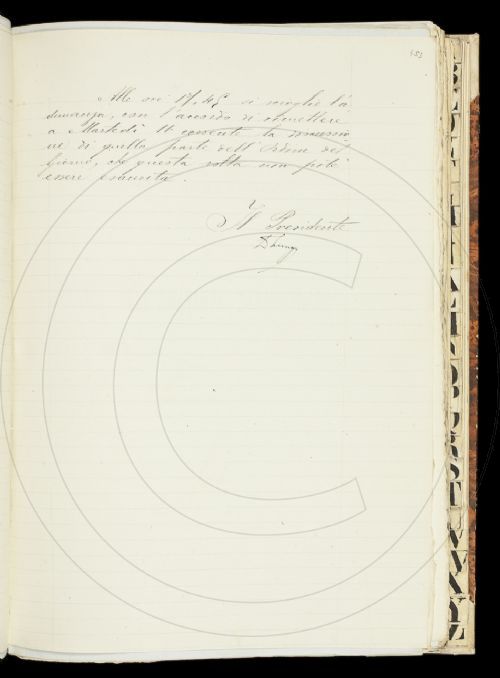 153
Alle ore 17,45 si scioglie l'a
dunanza, con l'accordo di rimettere
a Martedì 11 corrente la discussio
ne di quella parte dell'Ordine del
Giorno, che questa volta non potè
essere esaurita.
Il Presidente
C
B
L
M
N
O
P
Q
R
S
T
U
V
X
Y
Z